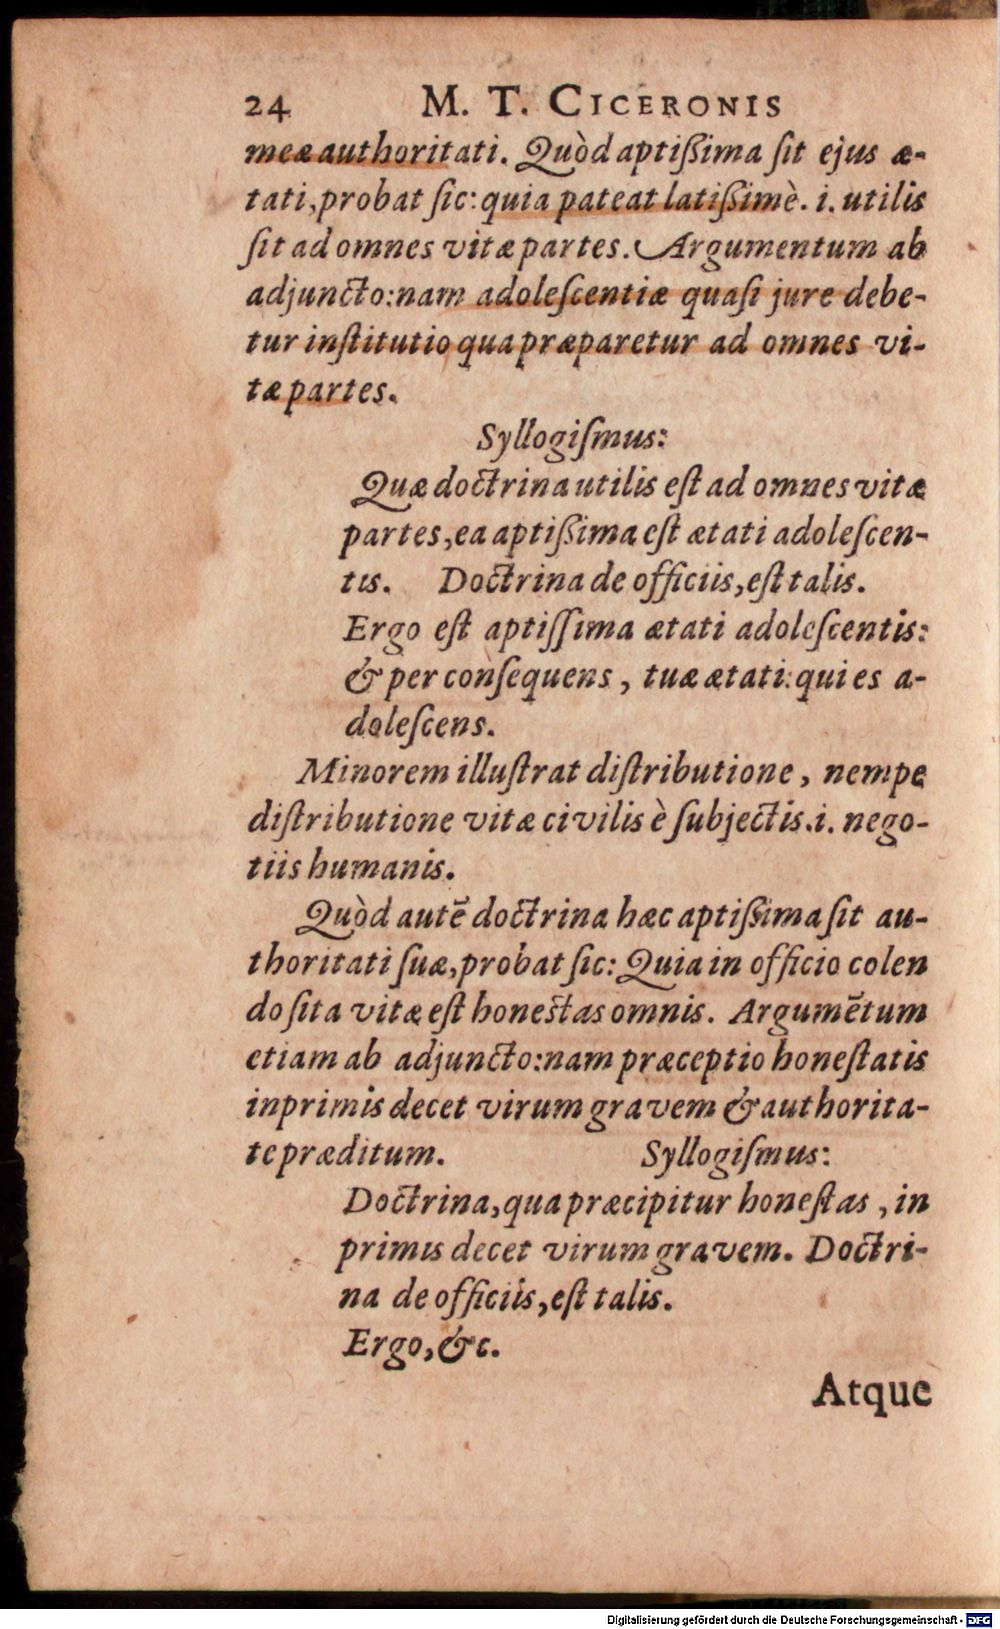 24 M. T. CICERONIS
meæ authoritati. Quòd aptißima ſit ejus æ-
tati, probat ſic: quia pateat latißimè. i. utilis
ſit ad omnes vitæ partes. Argumentum ab
adjuncto: nam adoleſcentiæ quaſi jure debe-
tur inſtitutio qua præparetur ad omnes vi-
tæ partes.
Syllogiſmus:
Quæ doctrina utilis eſt ad omnes vitæ
partes, ea aptißima eſt ætati adoleſcen-
tis. Doctrina de officiis, eſt talis.
Ergo eſt aptiſſima ætati adoleſcentis:
& per conſequens, tuæ ætati: qui es a-
doleſcens.
Minorem illuſtrat diſtributione, nempe
diſtributione vitæ civilis è ſubjectis. i. nego-
tiis humanis.
Quòd autē doctrina hæc aptißima ſit au-
thoritati ſuæ, probat ſic: Quia in officio colen
do ſita vitæ eſt honeſtas omnis. Argumētum
etiam ab adjuncto: nam præceptio honeſtatis
inprimis decet virum gravem & authorita-
te præditum. Syllogiſmus:
Doctrina, qua præcipitur honeſtas, in
primis decet virum gravem. Doctri-
na de officiis, eſt talis.
Ergo, &c.
Atque
Digitalisierung gefördert durch die Deutsche Forschungsgemeinschaft - DFG